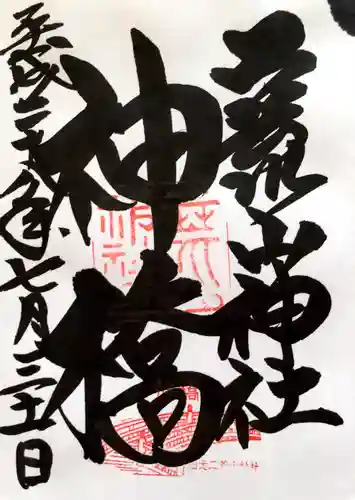 二荒山神社
神橋
平成二十八年七月三十一日